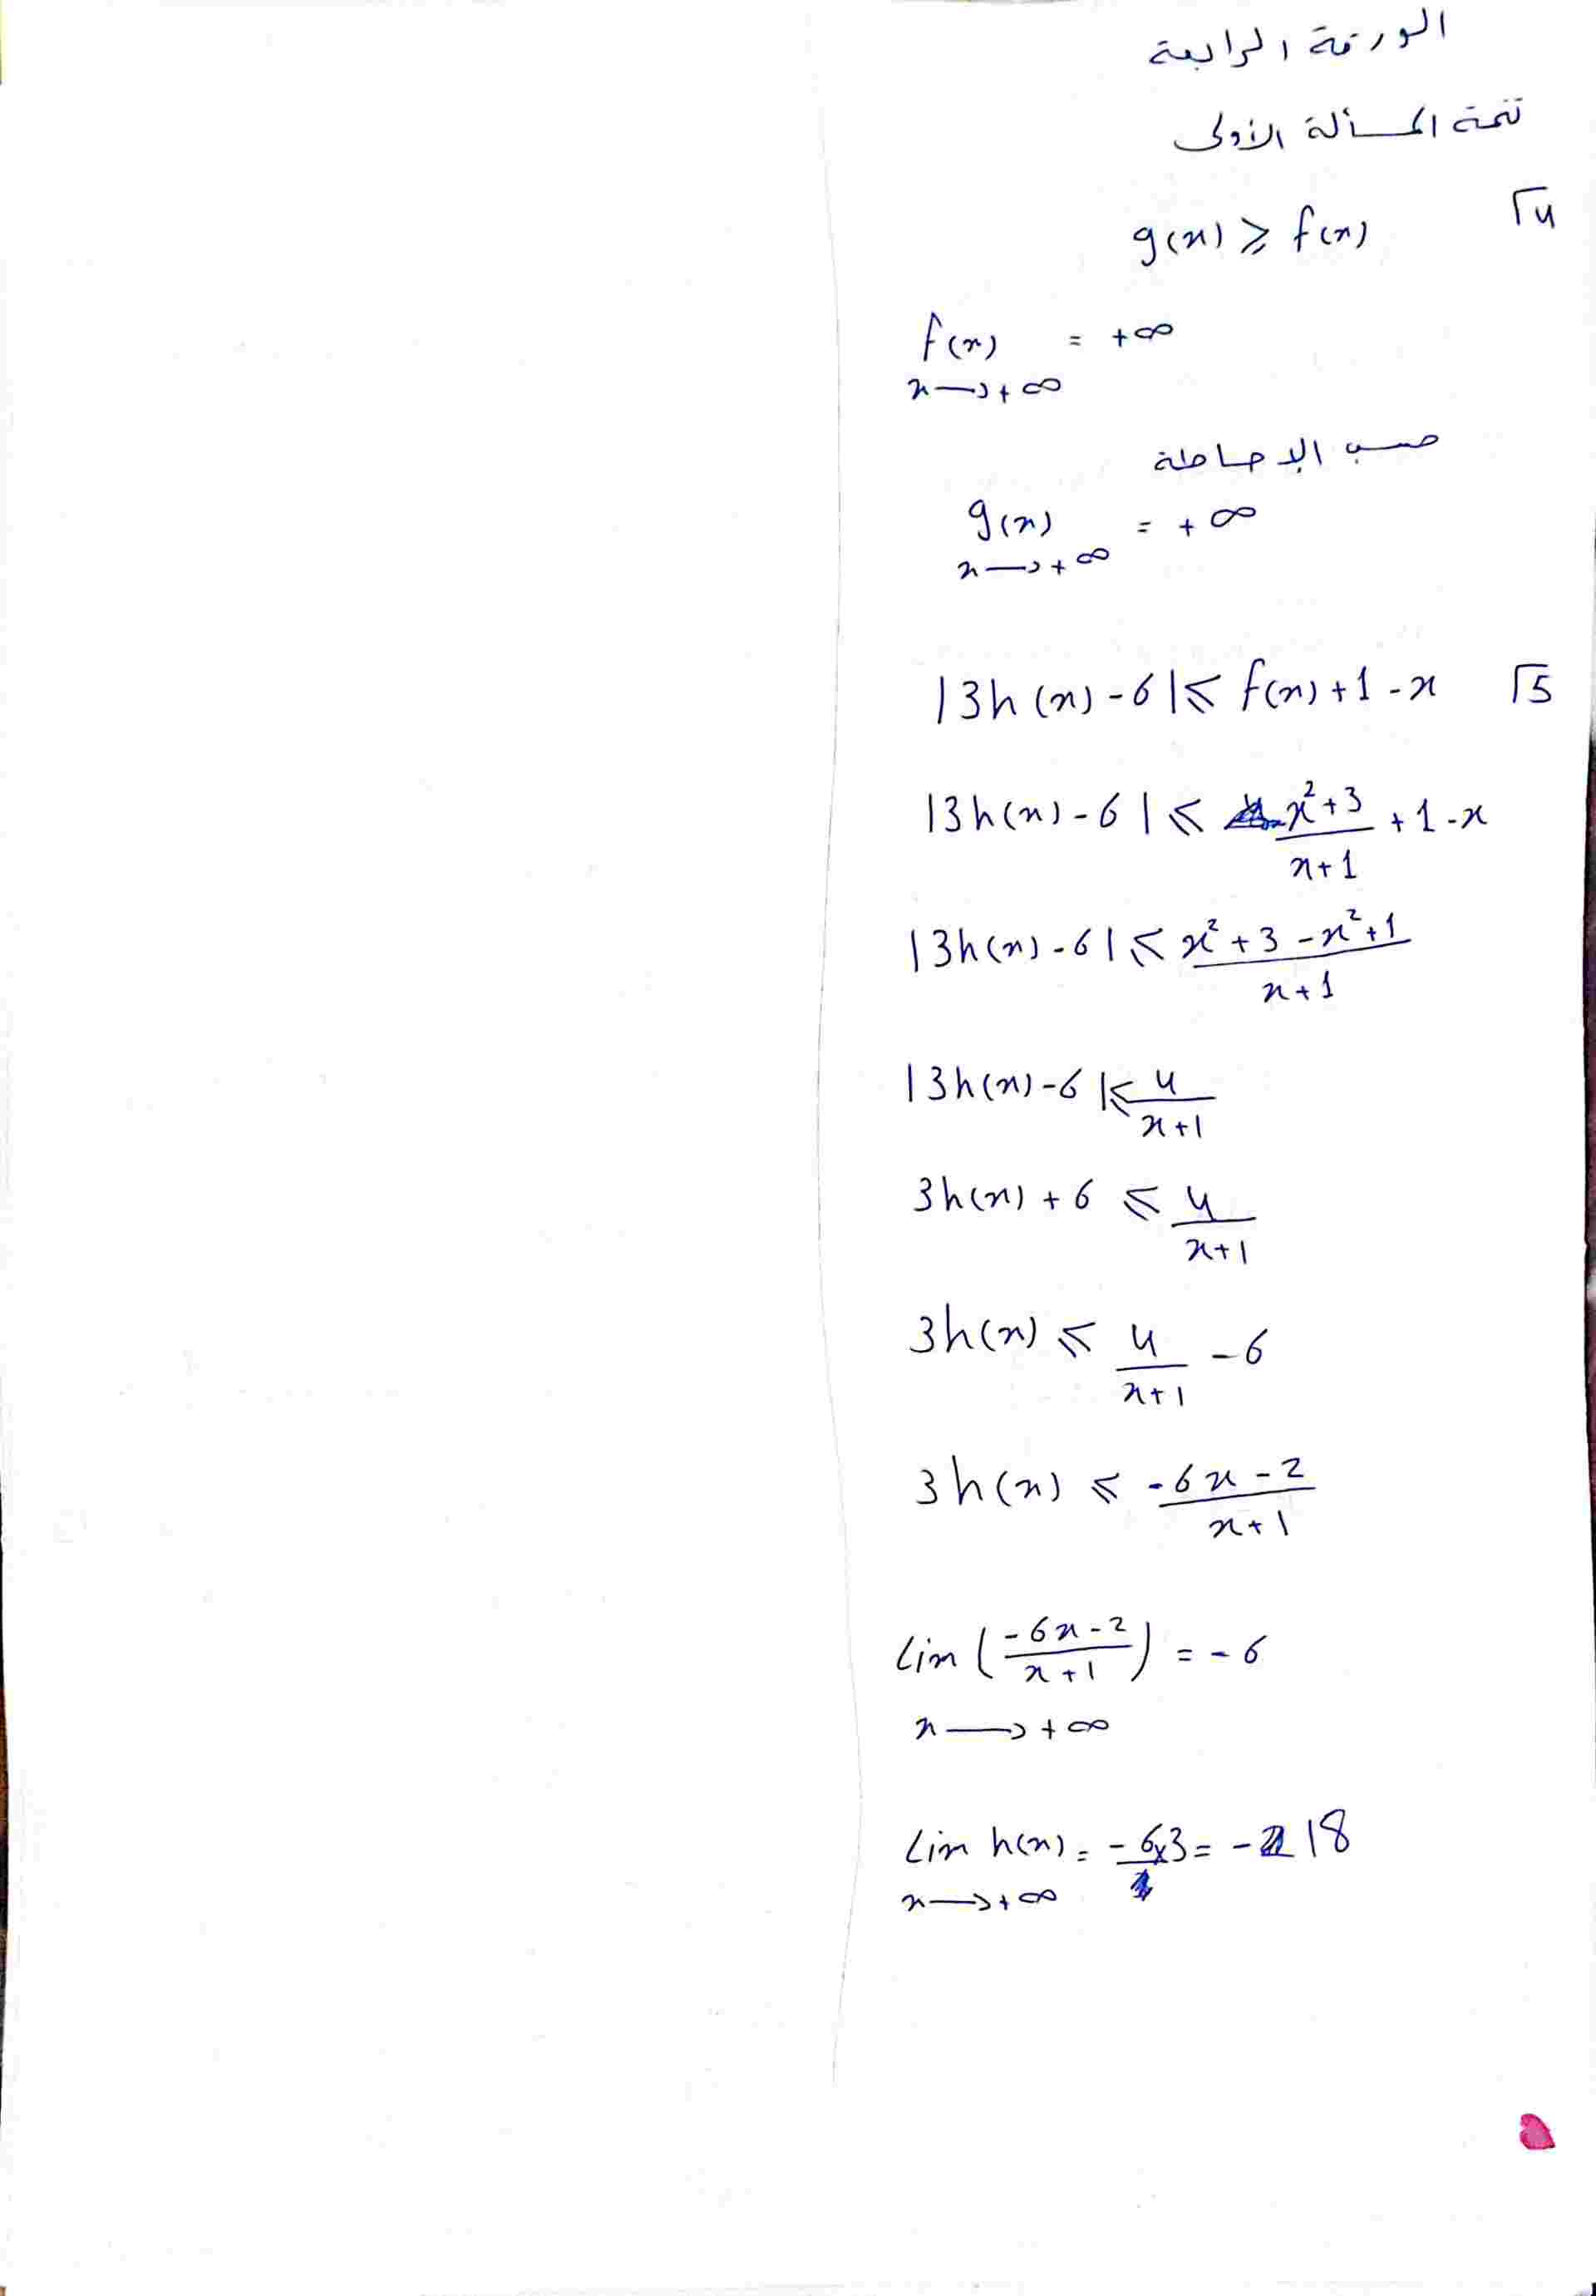 الورقة الرابعة
تتمة المسألة الأولى
4) g(x) ⩾ f(x)
f(x) = +∞
x → +∞
حسب الإحاطة
g(x) = +∞
x → +∞
5) |3h(x) - 6| ⩽ f(x) + 1 - x
|3h(x) - 6| ⩽ (x² + 3)/(x + 1) + 1 - x
|3h(x) - 6| ⩽ (x² + 3 - x² + 1)/(x + 1)
|3h(x) - 6| ⩽ 4/(x + 1)
3h(x) + 6 ⩽ 4/(x + 1)
3h(x) ⩽ 4/(x + 1) - 6
3h(x) ⩽ (-6x - 2)/(x + 1)
Lim ((-6x - 2)/(x + 1)) = -6
x → +∞
Lim h(x) = -6×3 = -18
x → +∞